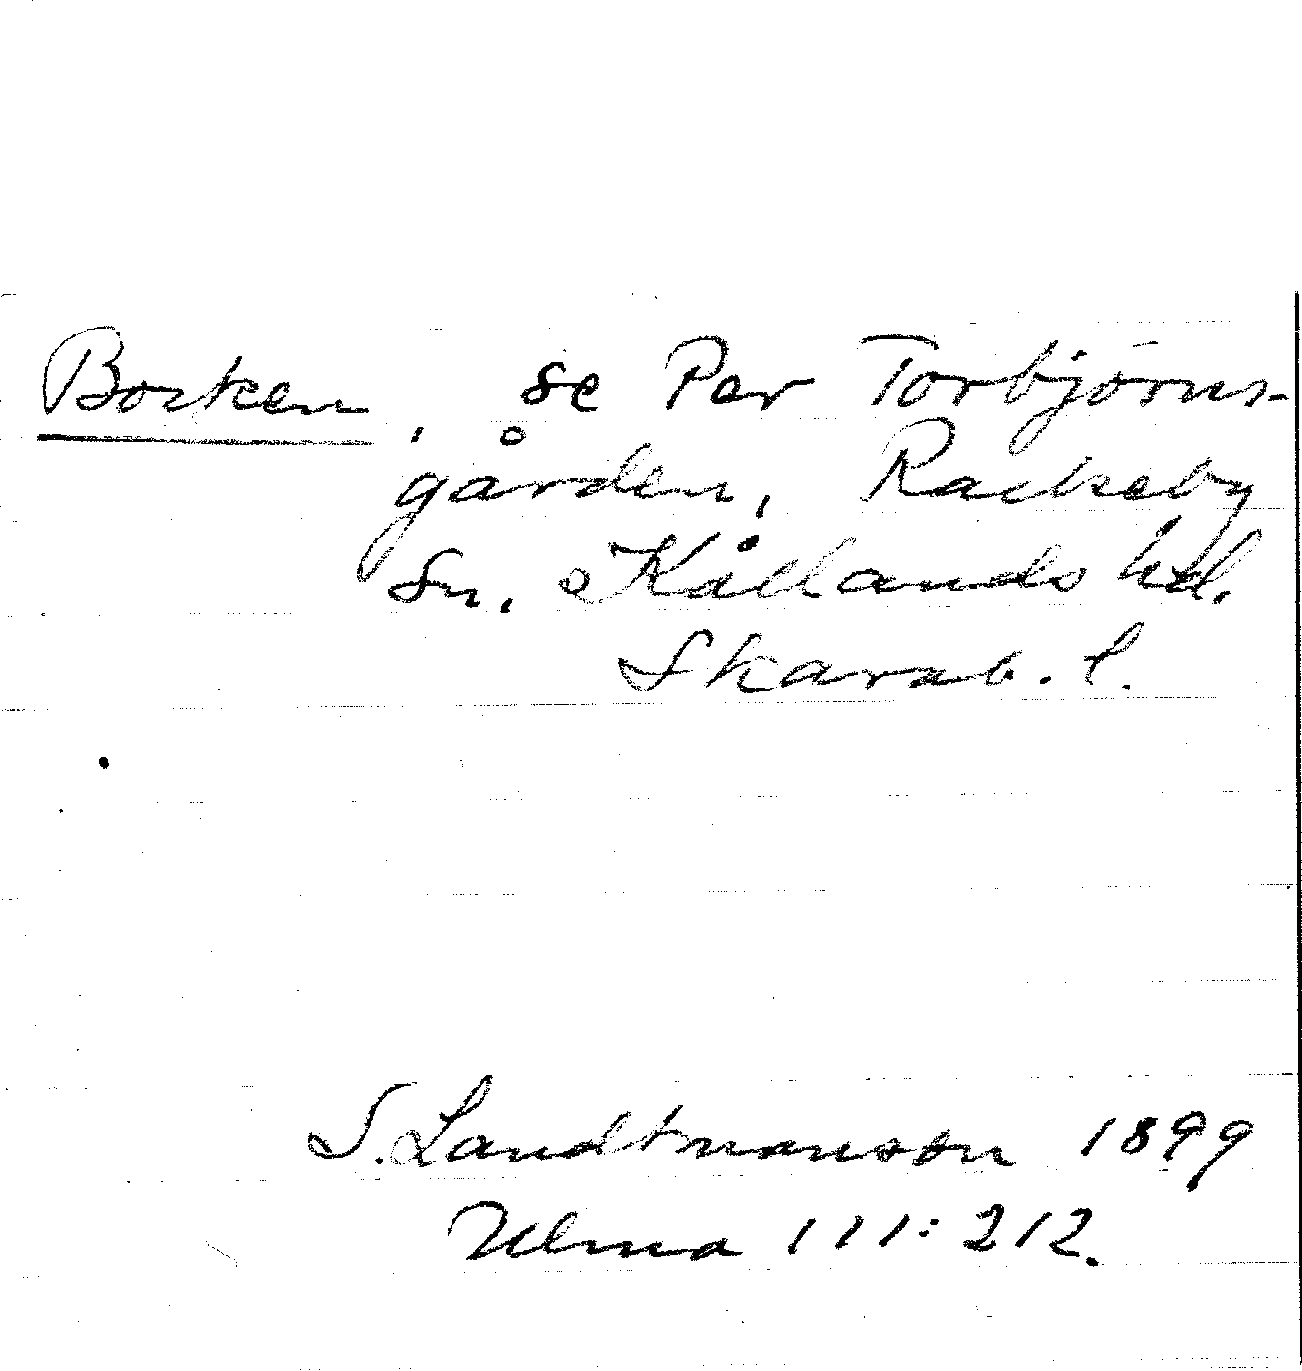 Borken, se Per Torbjörns-
gården, Rackeby
sn. Kållands hd.
Skarab. l.
S. Landtmanson 1899
Ulma 111:212.